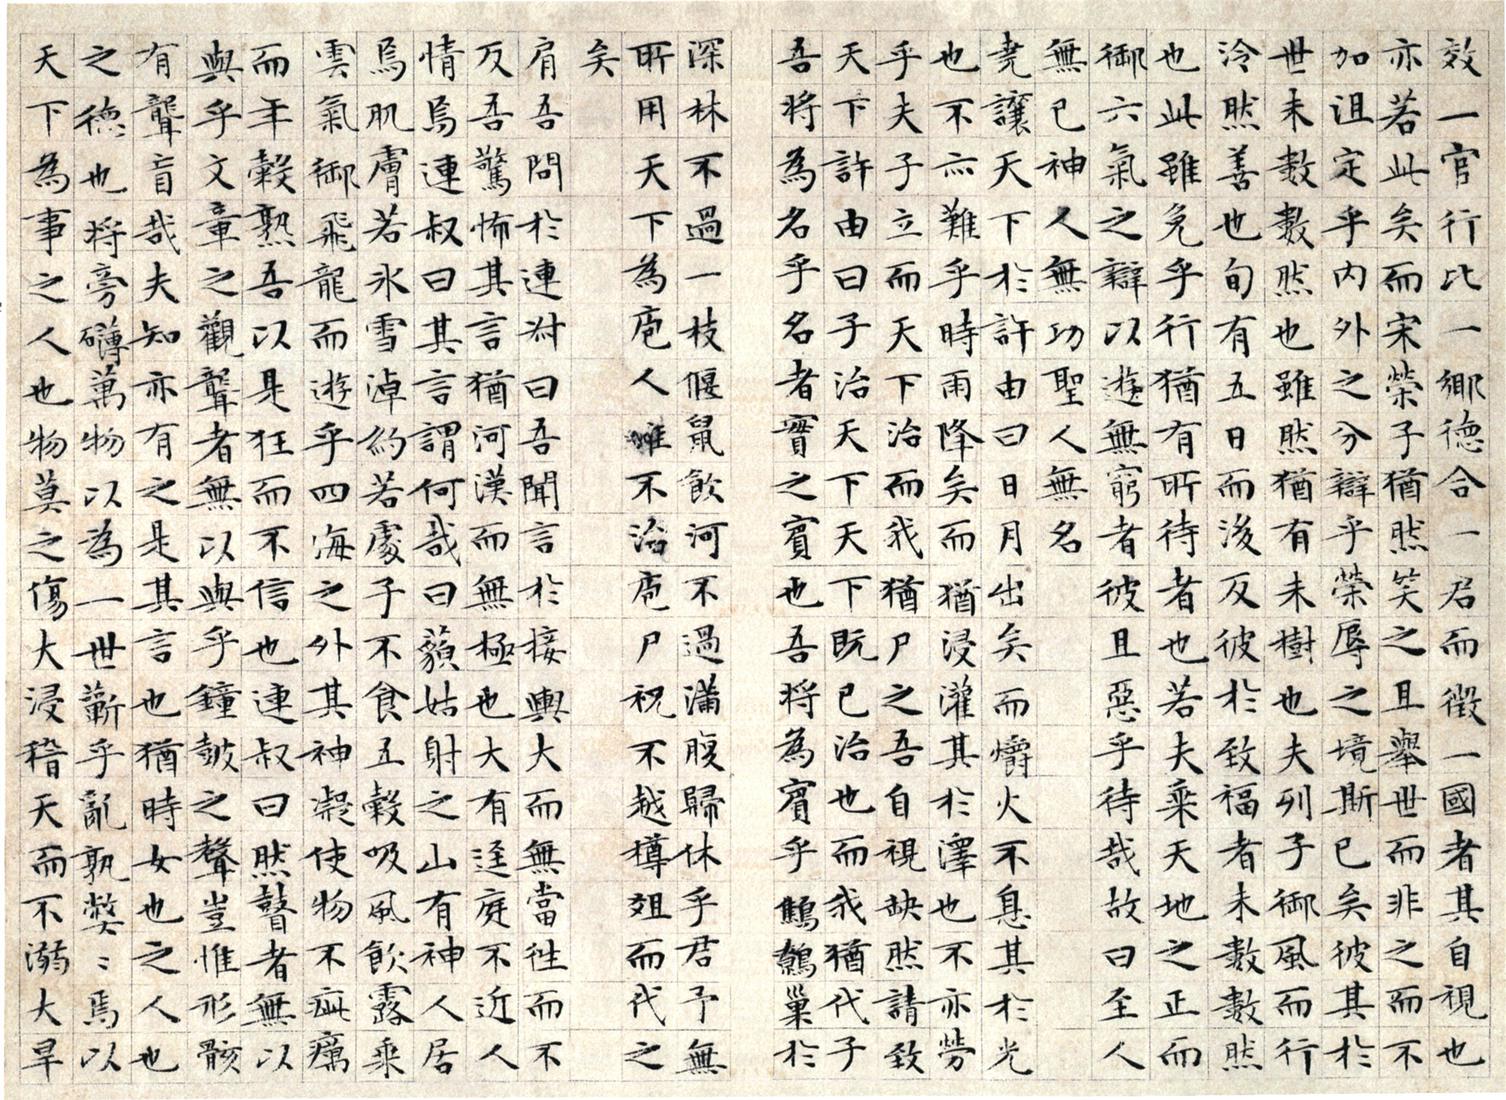 效一官行比一鄉德合一君而徵一國者其自視也
亦若此矣而宋榮子猶然笑之且舉世而非之而不
加沮定乎內外之分辯乎榮辱之境斯已矣彼其於
世未數數然也雖然猶有未樹也夫列子御風而行
泠然善也旬有五日而後反彼於致福者未數數然
也此雖免乎行猶有所待者也若夫乘天地之正而
御六氣之辯以遊無窮者彼且惡乎待哉故曰至人
無已神人無功聖人無名
堯讓天下於許由曰日月出矣而爝火不息其於光
也不亦難乎時雨降矣而猶浸灌其於澤也不亦勞
乎夫子立而天下治而我猶尸之吾自視缺然請致
天下許由曰子治天下天下既已治也而我猶代子
吾將為名乎名者實之賓也吾將為賓乎鷦鷯巢於
深林不過一枝偃鼠飲河不過滿腹歸休乎君予無
所用天下為庖人雖不治庖尸祝不越樽俎而代之
矣
肩吾問於連叔曰吾聞言於接輿大而無當往而不
反吾驚怖其言猶河漢而無極也大有逕庭不近人
情焉連叔曰其言謂何哉曰藐姑射之山有神人居
焉肌膚若氷雪淖約若處子不食五穀吸風飲露乘
雲氣御飛龍而遊乎四海之外其神凝使物不疵癘
而年穀熟吾以是狂而不信也連叔曰然瞽者無以
與乎文章之觀聾者無以與乎鐘鼓之聲豈惟形骸
有聾盲哉夫知亦有之是其言也猶時女也之人也
之德也將旁礴萬物以為一世蘄乎亂孰弊〻焉以
天下為事之人也物莫之傷大浸稽天而不溺大旱